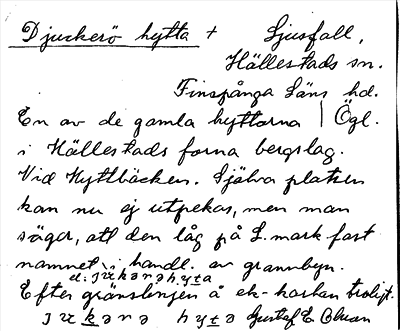 Djuckerö hytta + Ljusfall,
Hällestads sn.
Finspånga Läns hd.
En av de gamla hyttorna | Ögl.
i Hällestads forna bergslag.
Vid Hyttbäcken. Själva platsen
kan nu ej utpekas, men man
säger, att den låg på L. mark fast
namnet i handl. av grannbyn.
el. jʉkərə hyta
Efter gränslinjen å ek-kartan troligt.
jʉkərə hyta Gustaf E. Blman